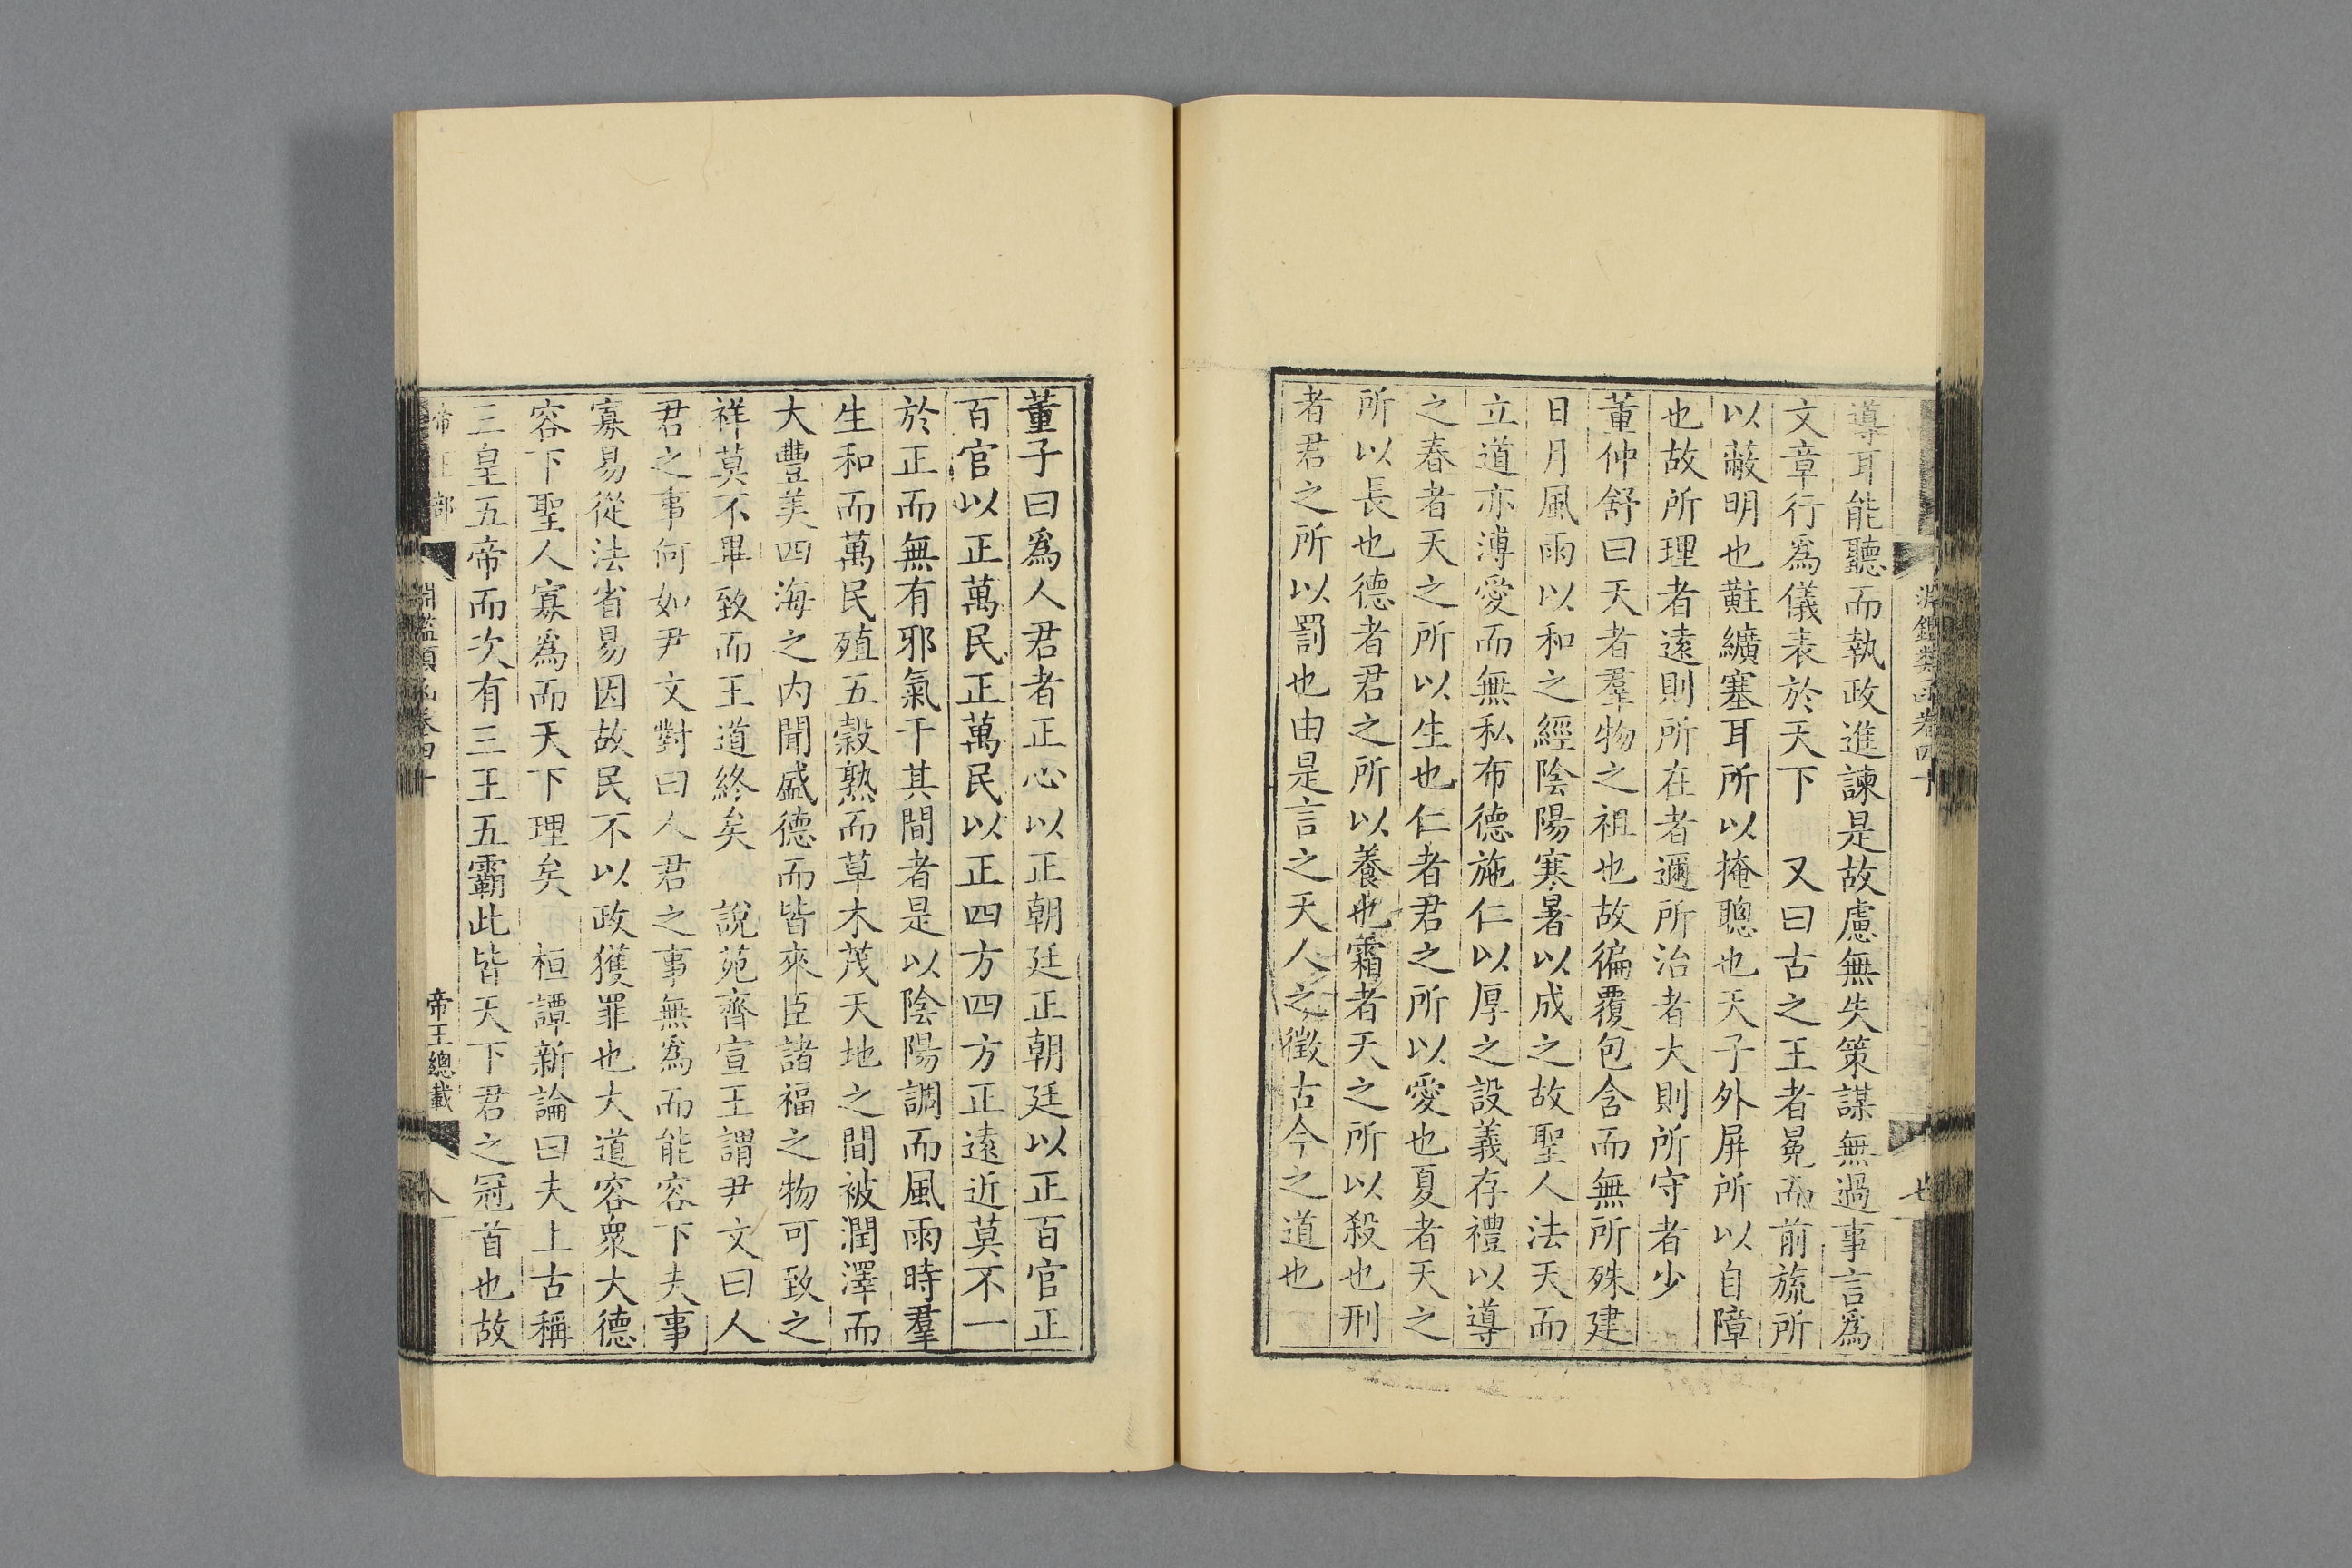 導耳能聽而執政進諫是故慮無失策謀無過事言爲
文章行爲儀表於天下 又曰古之王者冕而前旒所
以蔽明也黈纊塞耳所以掩聰也天子外屏所以自障
也故所理者遠則所在者邇所治者大則所守者少
董仲舒曰天者羣物之祖也故徧覆包含而無所殊建
日月風雨以和之經陰陽寒暑以成之故聖人法天而
立道亦溥愛而無私布德施仁以厚之設義存禮以導
之春者天之所以生也仁者君之所以愛也夏者天之
所以長也德者君之所以養也霜者天之所以殺也刑
者君之所以罰也由是言之天人之徵古今之道也
淵鑑類函卷四十
七
董子曰爲人君者正心以正朝廷正朝廷以正百官正
百官以正萬民正萬民以正四方四方正遠近莫不一
於正而無有邪氣干其間者是以陰陽調而風雨時羣
生和而萬民殖五穀熟而草木茂天地之間被潤澤而
大豐美四海之内聞盛德而皆來臣諸福之物可致之
祥莫不畢致而王道終矣 說苑齊宣王謂尹文曰人
君之事何如尹文對曰人君之事無爲而能容下夫事
寡易從法省易因故民不以政獲罪也大道容衆大德
容下聖人寡爲而天下理矣 桓譚新論曰夫上古稱
三皇五帝而次有三王五霸此皆天下君之冠首也故
帝王部
淵鑑類函卷四十
帝王總載
八